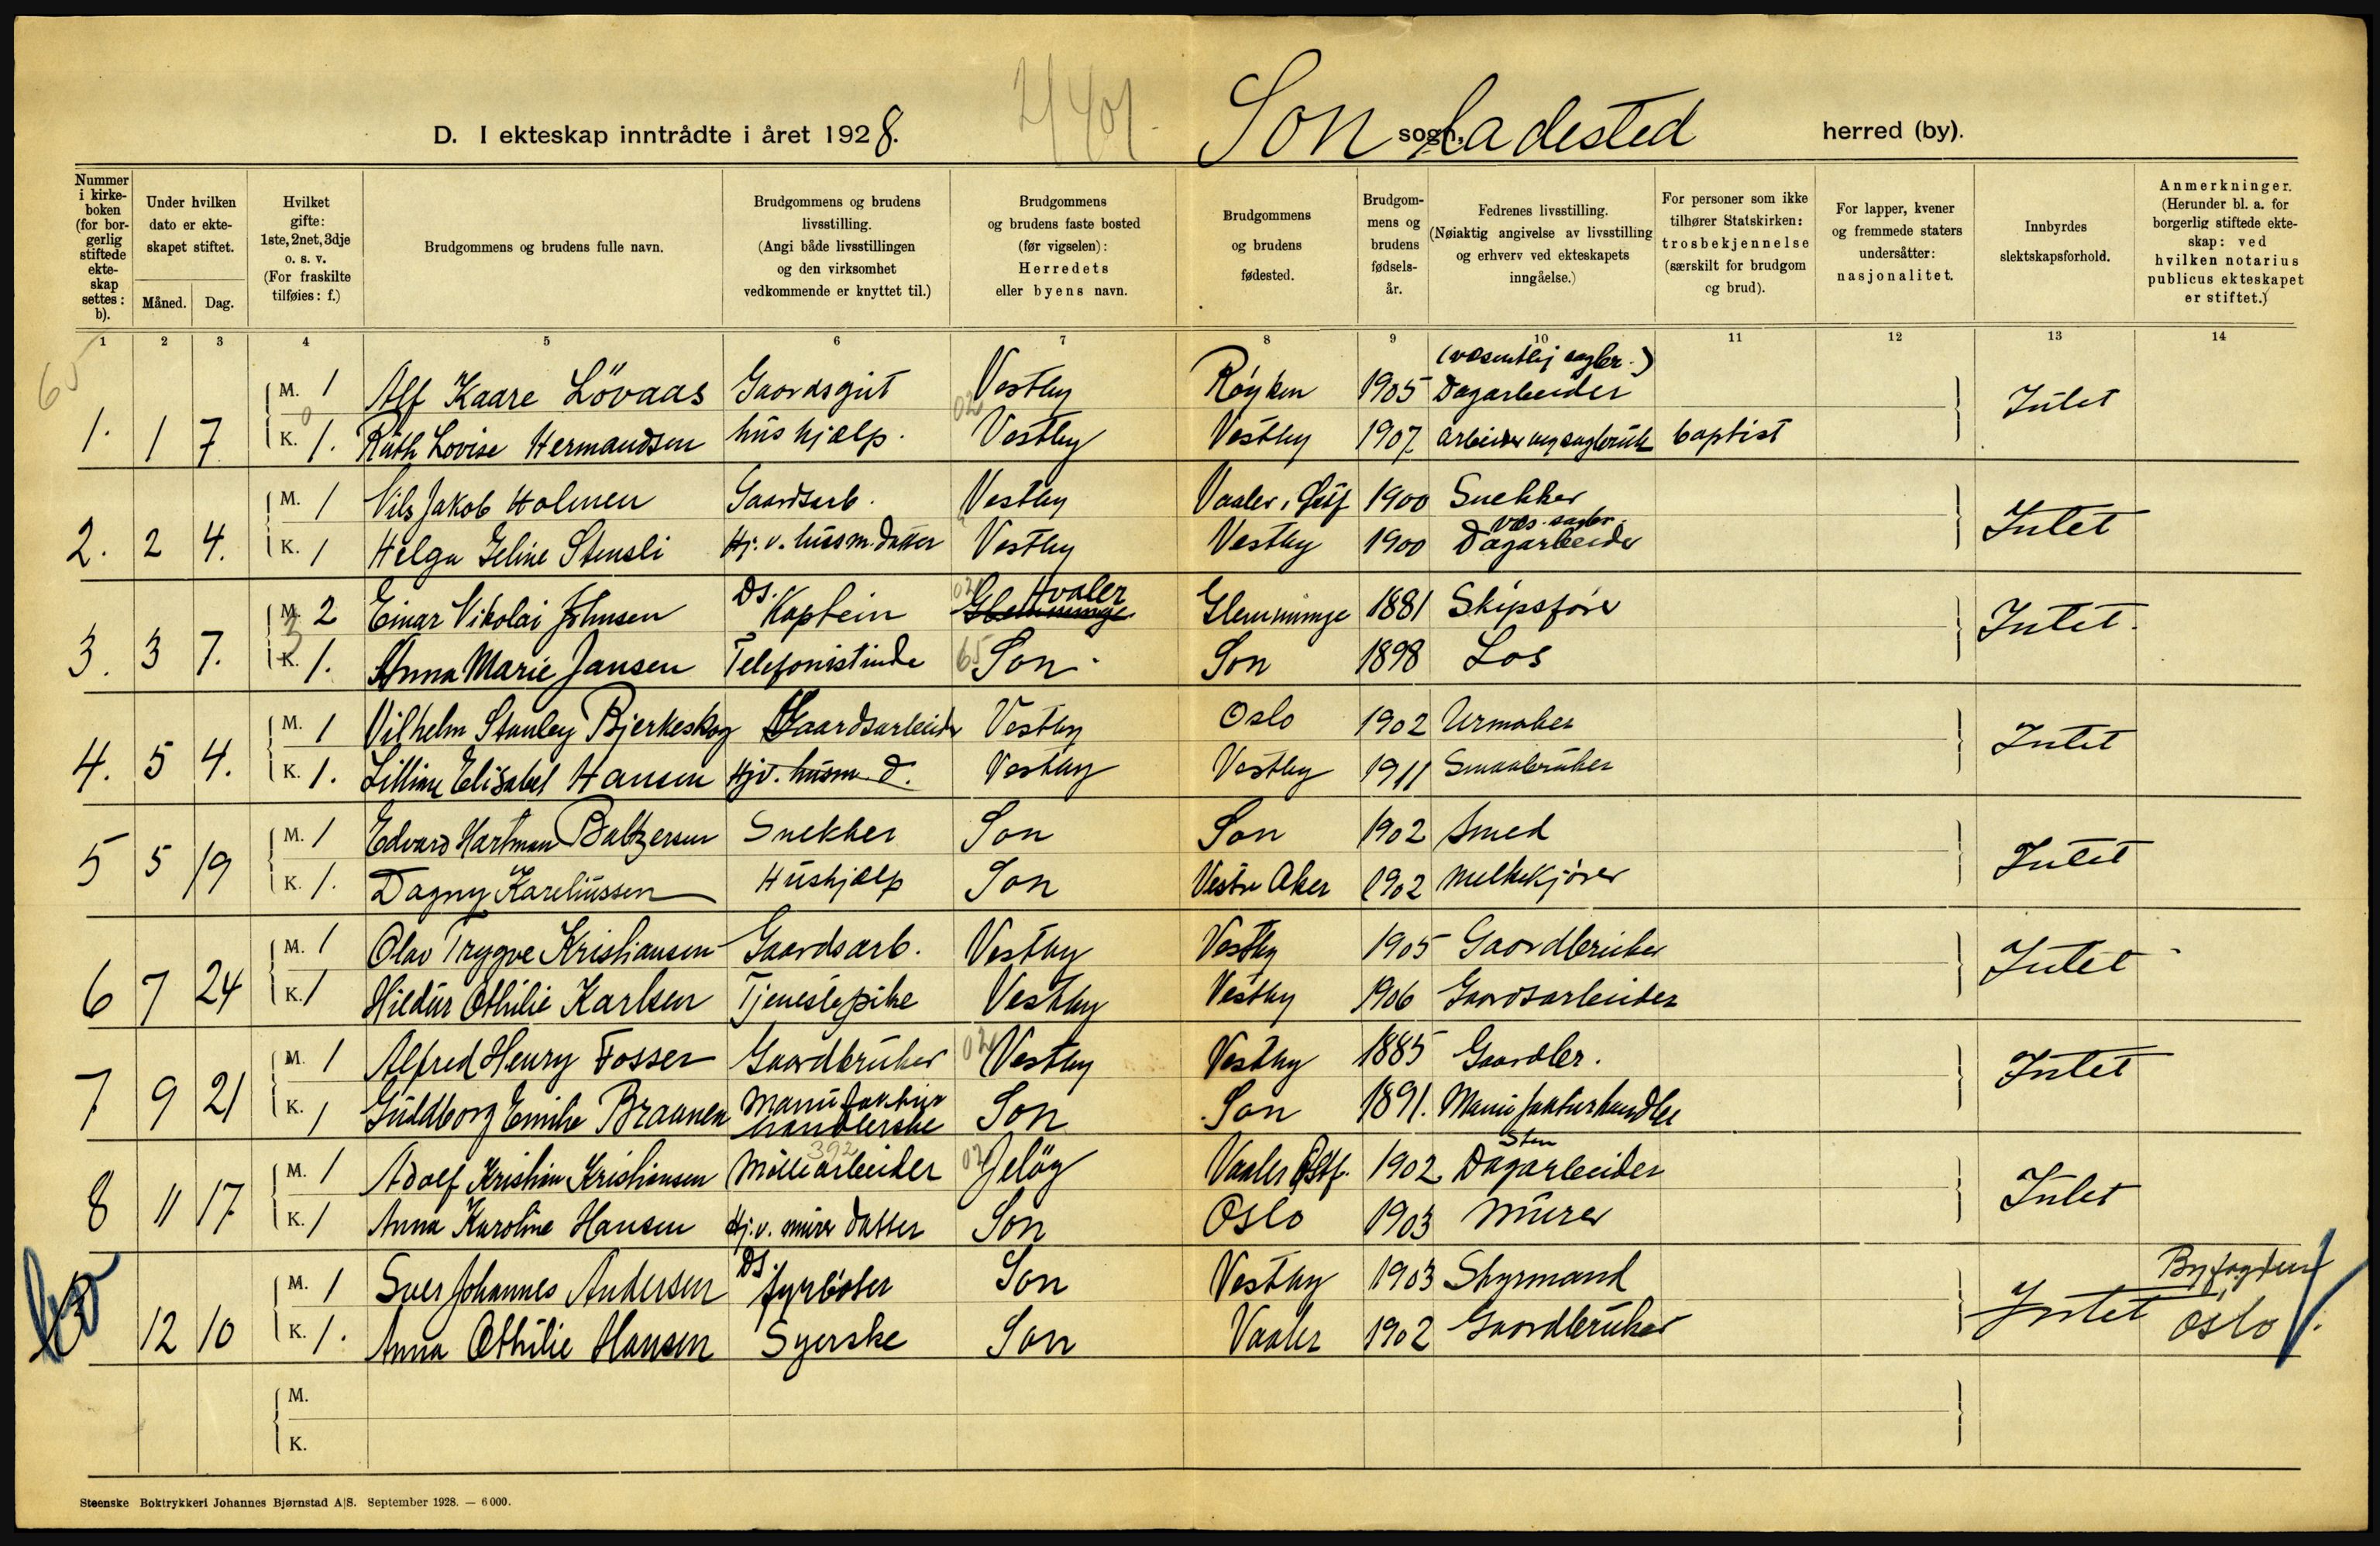 D. I ekteskap inntrådte i året 1928.
Son sogn, Ladested herred (by).
Nummer i kirkeboken (for borgerlig stiftede ekteskap settes: b).
Under hvilken dato er ekteskapet stiftet.
Måned. Dag.
Hvilket gifte: 1ste, 2net, 3dje o. s. v. (For fraskilte tilføies: f.)
Brudgommens og brudens fulle navn.
Brudgommens og brudens livsstilling. (Angi både livsstillingen og den virksomhet vedkommende er knyttet til.)
Brudgommens og brudens faste bosted (før vigselen): Herredets eller byens navn.
Brudgommens og brudens fødested.
Brudgommens og brudens fødselsår.
Fedrenes livsstilling. (Nøiaktig angivelse av livsstilling og erhverv ved ekteskapets inngåelse.)
For personer som ikke tilhører Statskirken: trosbekjennelse (særskilt for brudgom og brud).
For lapper, kvener og fremmede staters undersåtter: nasjonalitet.
Innbyrdes slektskapsforhold.
Anmerkninger. (Herunder bl. a. for borgerlig stiftede ekteskap: ved hvilken notarius publicus ekteskapet er stiftet.)
1 2 3 4 5 6 7 8 9 10 11 12 13 14
M. 1 Alf Kaare Lövaas Gaardsgut Vestby Røyken 1905 Dagarbeider
1. 1 7 K. 1. Ruth Lovise Hermandsen hushjælp. Vestby Vestby 1907 baptist Intet
M. 1 Nils Jakob Holmen Gaardsarb. Vestby Vaaler, 1900 Snekker
2. 2 4. K. 1 Helga Heline Stensli Hj. v. hussm. datter Vestby Vestby 1900 Dagarbeider Intet
M. 2 Einar Nikolai Johnsen DS. Kaptein Glemminge Hvaler Glemminge 1881 Skipsfører
3. 3 7. K. 1. Anna Marie Jansen Telefonistinde 65 Son Son 1898 Los Intet.
M. 1 Vilhelm Stanley Bjerkeskog Gaardsarbeider Vestby Oslo 1902 Urmaker
4. 5 4. K. 1. Lilliam Elisabet Hansen Hjv. husm. d. Vestby Vestby 1911 Smaabruker Intet
M. 1 Edvard Hartman Baltzersen Snekker Son Son 1902 Smed
5 5 19 K. 1. Dagny Kareliussen Hushjælp Son Vestre Aker 1902 Melkekjører Intet
M. 1 Olav Trygve Kristiansen Gaardsarb. Vestby Vestby 1905 Gaardbruker
6 7 24 K. 1 Hildur Othilie Karlsen Tjenestepike Vestby Vestby 1906 Gaardsarbeider Intet
M. 1 Alfred Henry Fosser Gaardbruker Vestby Vestby 1885 Gaardbr.
7 9 21 K. 1 Guldborg Emilie Braanen Manufaktur handlerske Son Son 1891. Manufakturhandler Intet
M. 1 Adolf Kristian Kristiansen Møllearbeider Jeløy Vaaler Østf. 1902 Sten Dagarbeider
8 11 17 K. 1 Anna Karoline Hansen Hj. v. murer datter Son Oslo 1903 Murer Intet
M. 1 Sver Johannes Andersen DS. fyrbøter Son Vestby 1903 Styrmand
12 10 K. 1. Anna Othilie Hansen Syerske Son Vaaler 1902 Gaardbruker Intet Byfogden Oslo.
M.
K.
Steenske Boktrykkeri Johannes Bjørnstad A|S. September 1928. — 6000.